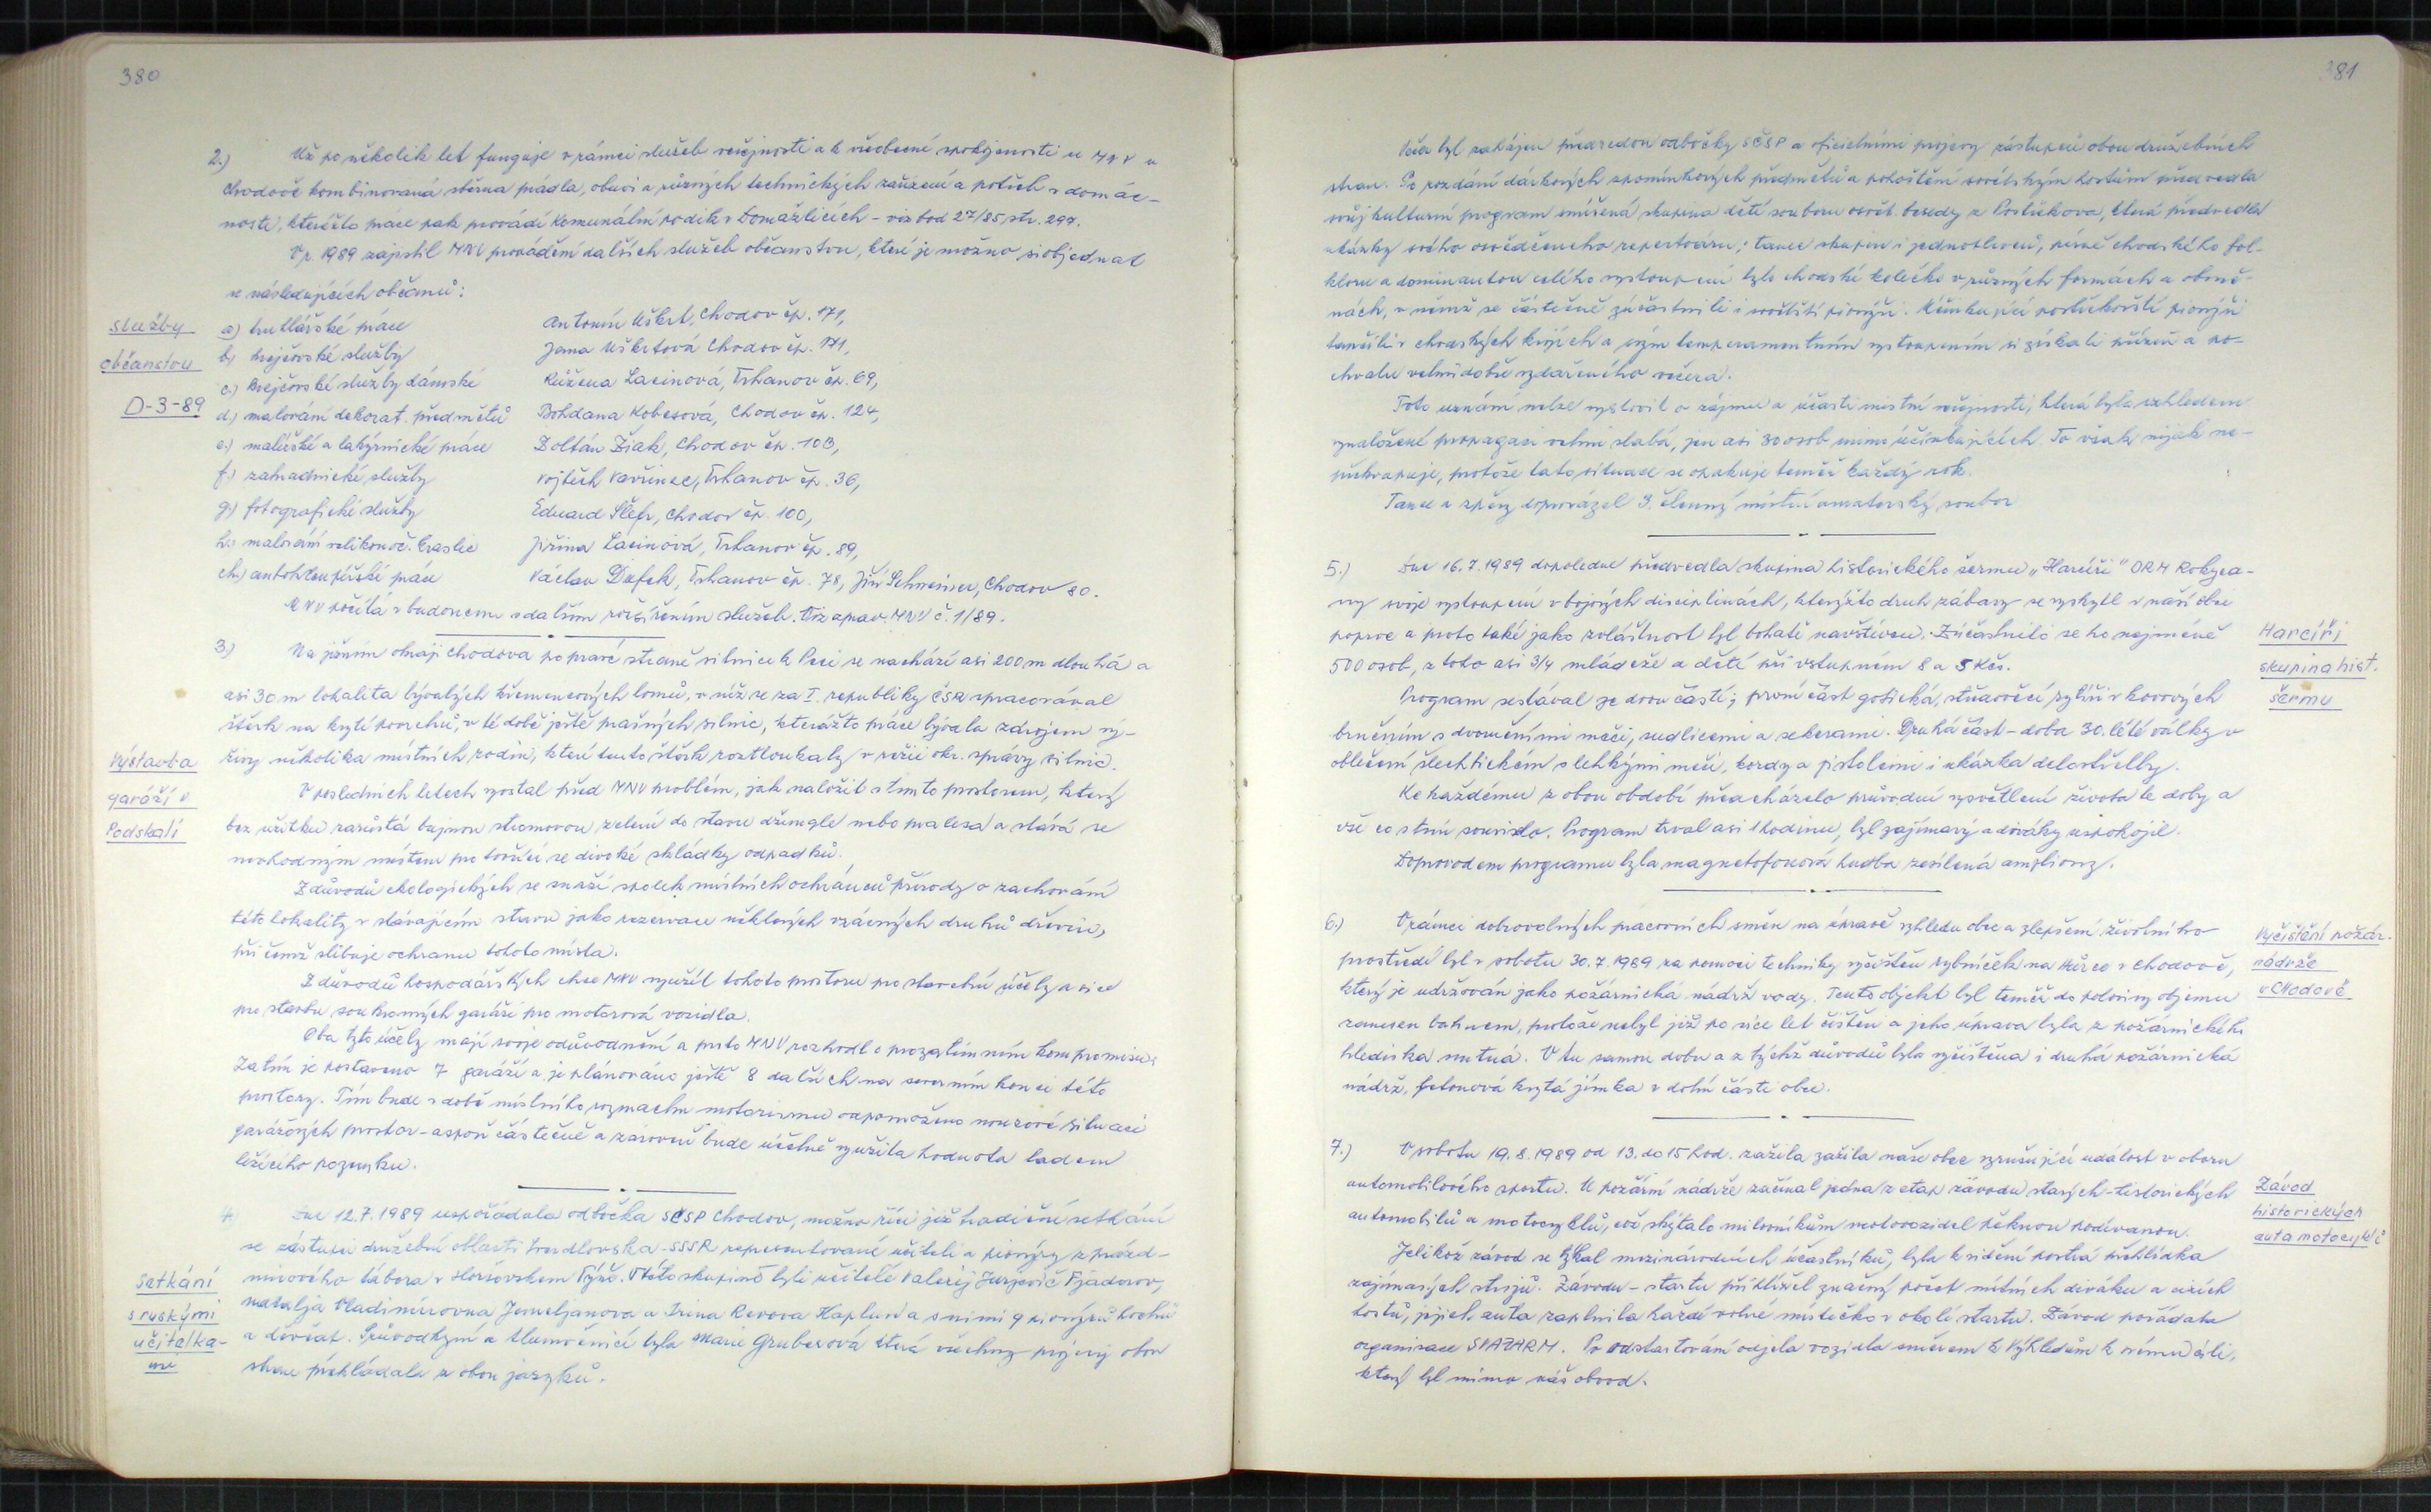 380
2.) Už po několik let funguje v rámci služeb veřejnosti a k všeobecné spokojenosti u MNV v
Chodově kombinovaná sběrna prádla, obuvi a různých technických zařízení a potřeb v domác-
nosti, kteréžto práce pak provádí Komunální podnik v Domažlicích - viz bod 27/85, str. 297.
V r. 1989 zajistil MNV provádění dalších služeb občanstvu, které je možno si objednat
u následujících občanů:
Služby
občanstvu
D-3-89
a) truhlářské práce Antonín Uškrt, Chodov čp. 171,
b) krejčovské služby Jana Uškrtová Chodov čp. 171,
c.) Krejčovské služby dámské Růžena Lacinová, Trhanov čp. 69,
d.) malování dekorat. předmětů Bohdana Kobesová, Chodov čp. 124,
e.) malířské a lakýrnické práce Zoltán Žiak, Chodov čp. 103,
f.) zahradnické služby Vojtěch Vavřinec, Trhanov čp. 36,
g.) fotografické služby Eduard Šlefr, Chodov čp. 100,
h.) malování velikonoč. kraslic Jiřina Lacinová, Trhanov čp. 89,
ch.) autoklempířské práce Václav Dufek, Trhanov čp. 78, Jiří Schneiner, Chodov 80.
MNV počítá v budoucnu s dalším rozšířením služeb. Viz zprav. MNV č. 1/89.
3.) Na jižním okraji Chodova po pravé straně silnice k Peci se nachází asi 200 m dlouhá a
asi 30 m lokalita bývalých křemencových lomů, v níž se za I. republiky ČSR zpracovával
štěrk na krytí povrchů, v té době ještě prašných silnic, kterážto práce bývala zdrojem vý-
živy několika místních rodin, které tento štěrk roztloukaly v režii okr. správy silnic.
Výstavba
garáží v
Podskalí
V posledních letech vyvstal před MNV problém, jak naložit s tímto prostorem, který
bez užitku zarůstá bujnou stromovou zelení do stavu džungle nebo pralesa a stává se
nevhodným místem pro tvořící se divoké skládky odpadků.
Z důvodů ekologických se snaží spolek místních ochránců přírody o zachování
této lokality v stávajícím stavu jako rezervace některých vzácných druhů dřevin,
při čemž slibuje ochranu tohoto místa.
Z důvodů hospodářských chce MNV využít tohoto prostoru pro stavební účely a sice
pro stavbu soukromých garáží pro motorová vozidla.
Oba tyto účely mají svoje odůvodnění a proto MNV rozhodl o prozatímním kompromisu:
Zatím je postaveno 7 garáží a je plánováno ještě 8 dalších na severním konci této
prostory. Tím bude v době místního rozmachu motorismu odpomoženo nouzové situaci
garážových prostor - aspoň částečně a zároveň bude účelně využita hodnota ladem
ležícího pozemku.
4.) Dne 12.7.1989 uspořádala odbočka SČSP Chodov, možno říci již tradiční setkání
se zástupci družební oblasti Sverdlovska - SSSR reprezentované učiteli a pionýry z prázd-
ninového tábora v Horšovském Týně. V této skupině byli učitelé Valerij Jurjevič Fjodorov,
Natalja Vladimirovna Jemeljanova a Irina Revova Kaplun a s nimi 9 pionýrů hochů
a děvčat. Průvodkyní a tlumočnicí byla Marie Gruberová, která všechny projevy obou
stran překládala z obou jazyků.
Setkání
s ruskými
učitelka-
mi
381
Večer byl zahájen předsedou odbočky SČSP a oficielními projevy zástupců obou družebních
stran. Po rozdání dárkových upomínkových předmětů a pohoštění sovětským hostům předvedla
svůj kulturní program smíšená skupina dětí souboru osvět. besedy z Postřekova, která předvedla
ukázky svého osvědčeného repertoáru; tance skupin i jednotlivců, písně chodského fol-
kloru a dominantou celého vystoupení bylo chodské kolečko v různých formách a obmě-
nách, v němž se částečně zúčastnili i sovětští pionýři. Účinkující postřekovští pionýři
tančili v chodských krojích a svým temperamentním vystoupením si získali přízeň a po-
chvalu velmi dobře zdařeného večera.
Toto uznání nelze vyslovit o zájmu a účasti místní veřejnosti, která byla vzhledem
vynaložené propagaci velmi slabá, jen asi 30 osob mimo účinkujících. To však nijak ne-
překvapuje, protože tato situace se opakuje téměř každý rok.
Tance a zpěvy doprovázel 3. členný místní amatérský soubor
5.) Dne 16.7.1989 dopoledne předvedla skupina historického šermu „Harcíři" ORM Rokyca-
ny svoje vystoupení v bojových disciplinách, kterýžto druh zábavy se vyskytl v naší obci
poprvé a proto také jako zvláštnost byl bohatě navštíven. Zúčastnilo se ho nejméně
500 osob, z toho asi 3/4 mládeže a dětí při vstupném 8 a 5 Kčs.
Harcíři
skupina hist.
šermu
Program sestával ze dvou částí; první část gotická, středověcí rytíři v kovových
brněních s dvouručními meči, sudlicemi a sekerami. Druhá část - doba 30. leté války v
oblečení šlechtickém s lehkými meči, kordy a pistolemi i ukázka dělostřelby.
Ke každému z obou období předcházelo průvodní vysvětlení života té doby a
vše co s tím souviselo. Program trval asi 1 hodinu, byl zajímavý a diváky uspokojil.
Doprovodem programu byla magnetofonová hudba zesílená ampliony.
6.) V rámci dobrovolných pracovních směn na úpravě vzhledu obce a zlepšení životního
prostředí byl v sobotu 30.7.1989 za pomoci techniky vyčištěn rybníček na Hůrce v Chodově,
který je udržován jako požárnická nádrž vody. Tento objekt byl téměř do poloviny objemu
zanesen bahnem, protože nebyl již po více let čištěn a jeho úprava byla z požárnického
hlediska nutná. V tu samou dobu a z týchž důvodů byla vyčištěna i druhá požárnická
nádrž, betonová krytá jímka v dolní části obce.
Vyčištění požár.
nádrže
v Chodově
7.) V sobotu 19.8.1989 od 13. do 15 hod. zažila zažila naše obec vzrušující událost v oboru
automobilového sportu. U požární nádrže začínal jedna z etap závodu starých - historických
automobilů a motocyklů, což skýtalo milovníkům motovozidel pěknou podívanou.
Jelikož závod se týkal mezinárodních účastníků, byla k vidění pestrá přehlídka
zajímavých strojů. Závodu - startu přihlížel značný počet místních diváků a cizích
hostů, jejich auta zaplnila každé volné místečko v okolí startu. Závod pořádala
organisace SVAZARM. Po odstartování odjela vozidla směrem k Výhledům k svému cíli,
který byl mimo náš obvod.
Závod
historických
aut a motocyklů